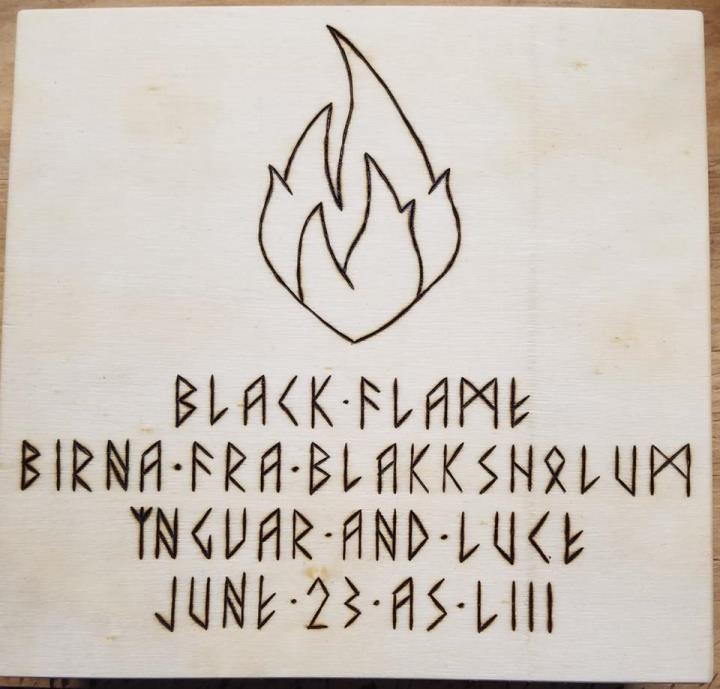 BLACK·FLAME
BIRNA·FRA·BLAKKSHOLUM
YNGVAR·AND·LUCE
JUNE·23·AS·LIII